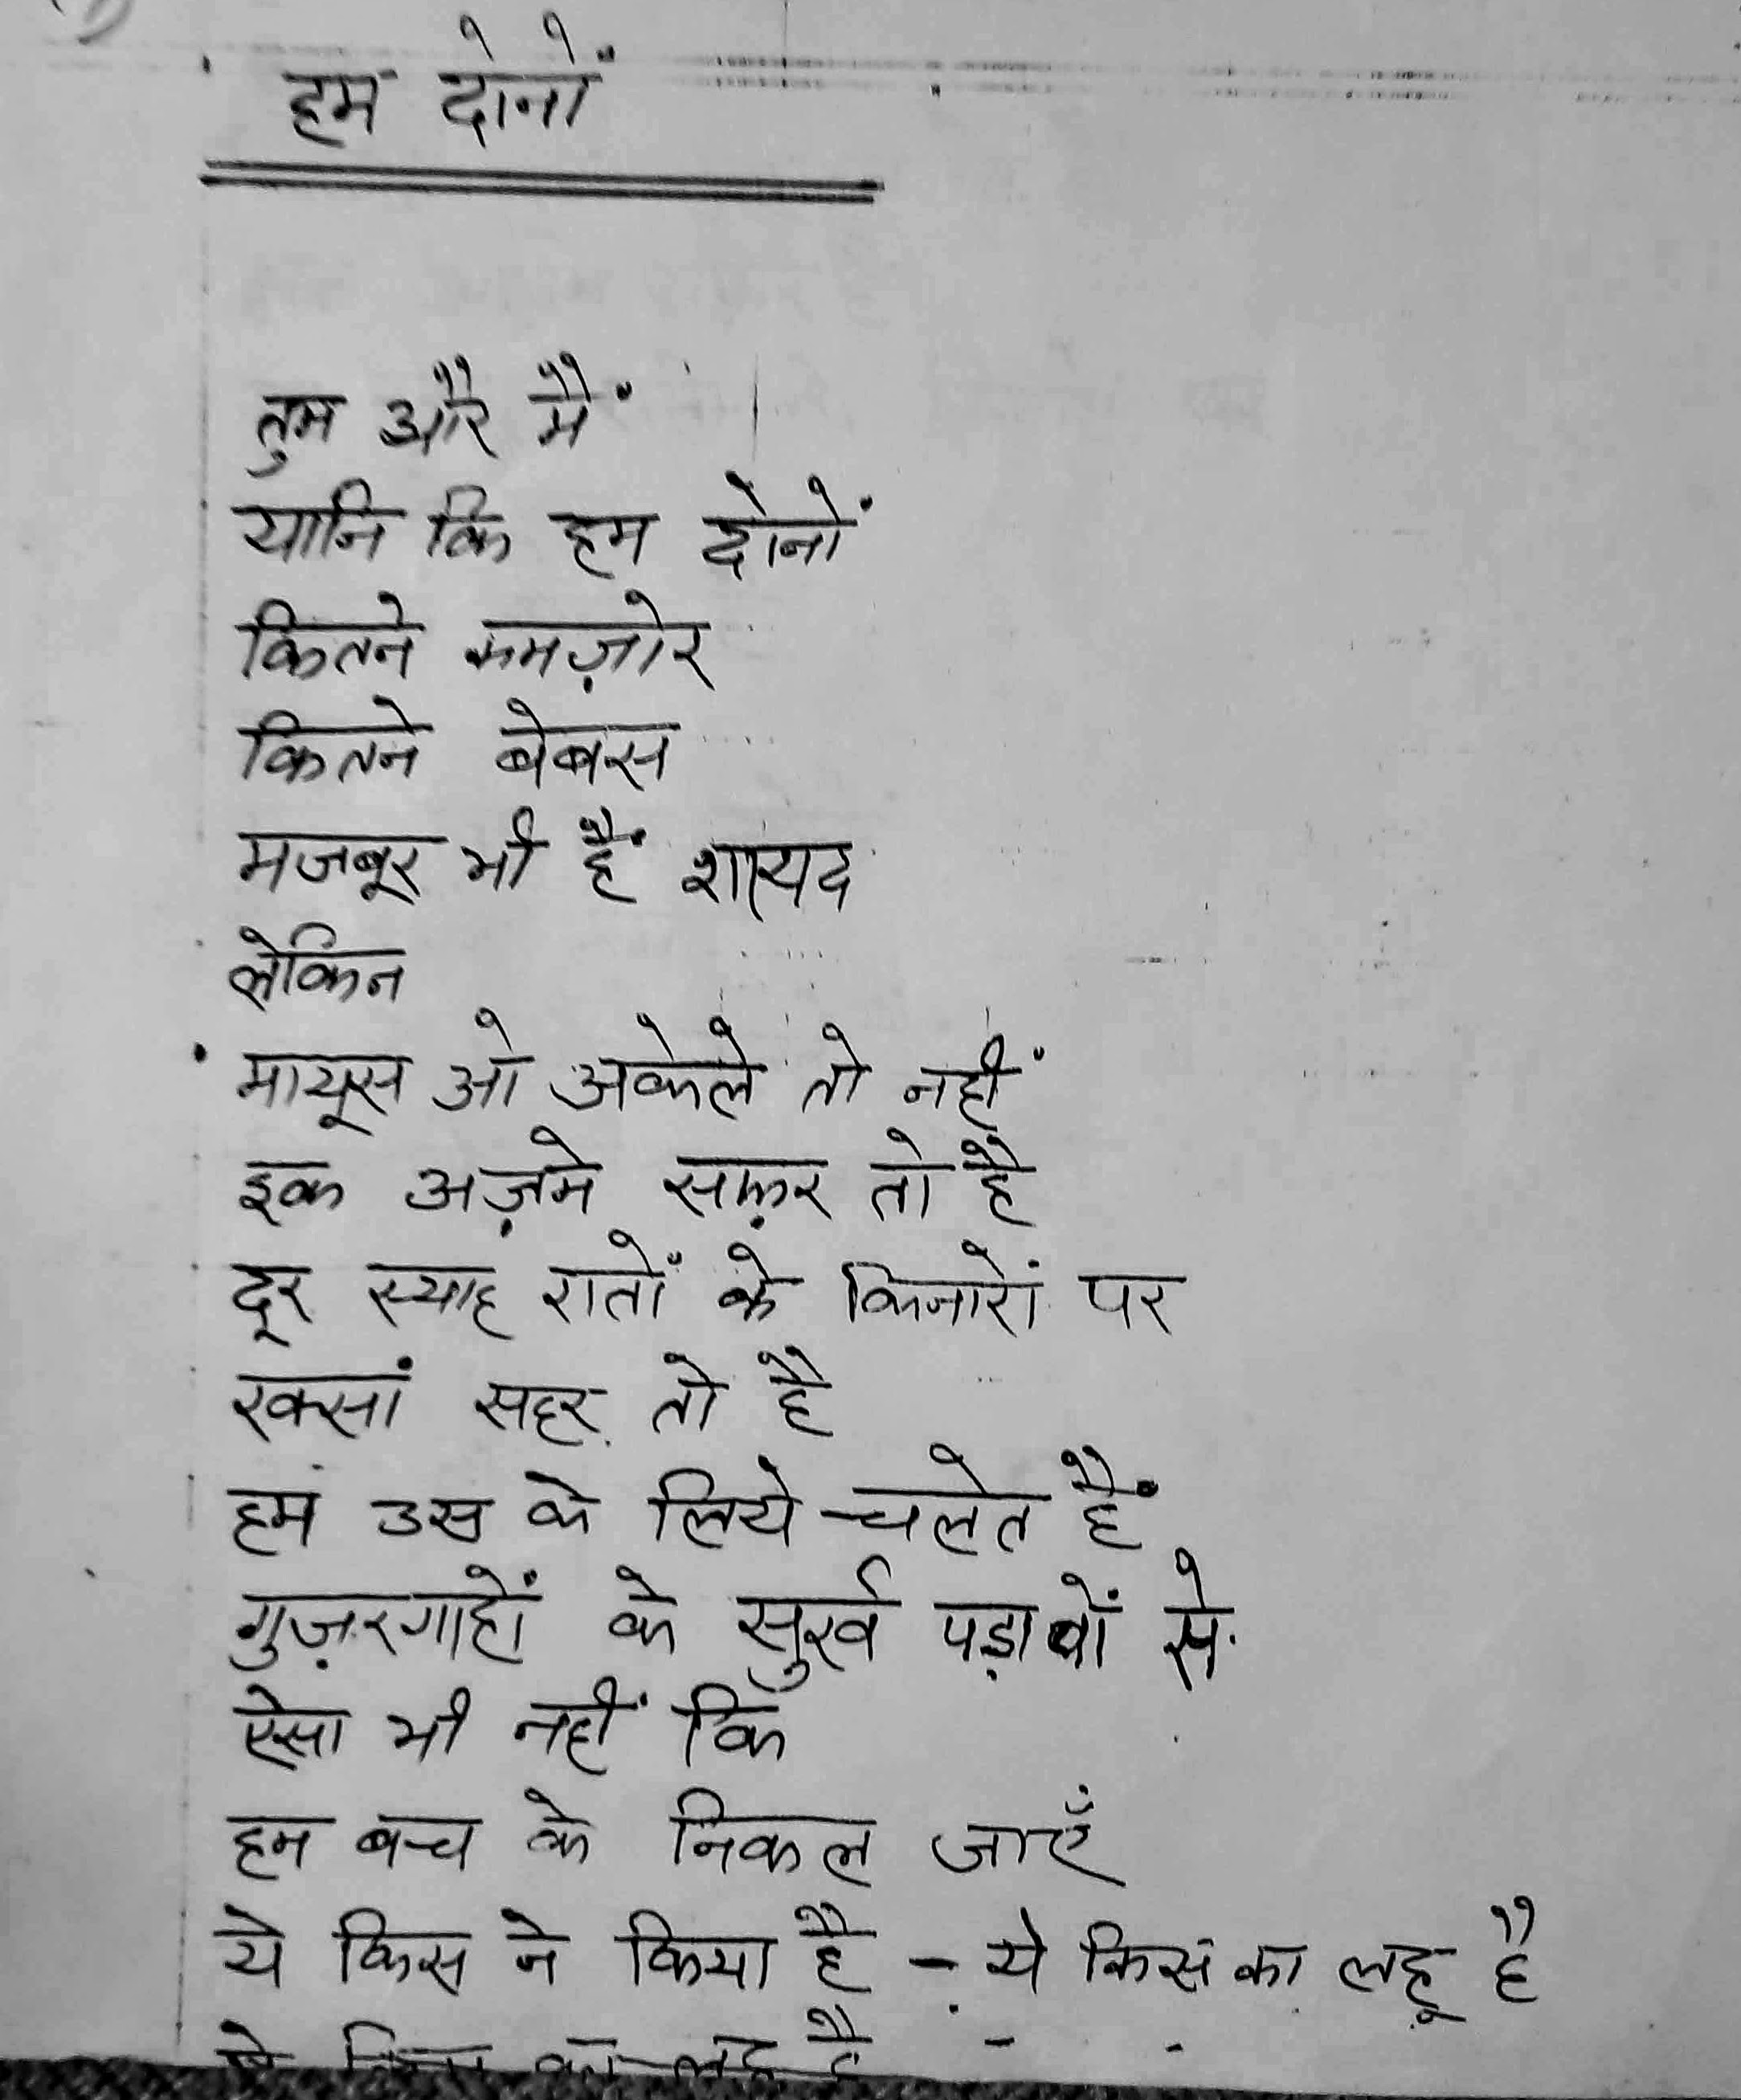 हम दोनों
तुम और मैं
यानि कि हम दोनों
कितने कमज़ोर
कितने बेबस
मजबूर भी हैं शायद
लेकिन
मायूस ओ अकेले तो नहीं
इक अज़मे सफ़र तो है
दूर स्याह रातों के किनारों पर
रक्सां सहर तो है
हम उस के लिये चलते हैं
गुज़रगाहों के सुर्ख पड़ावों से
ऐसा भी नहीं कि
हम बच के निकल जाएँ
ये किस ने किया है - ये किस का लहू है
ये किस का लहू है